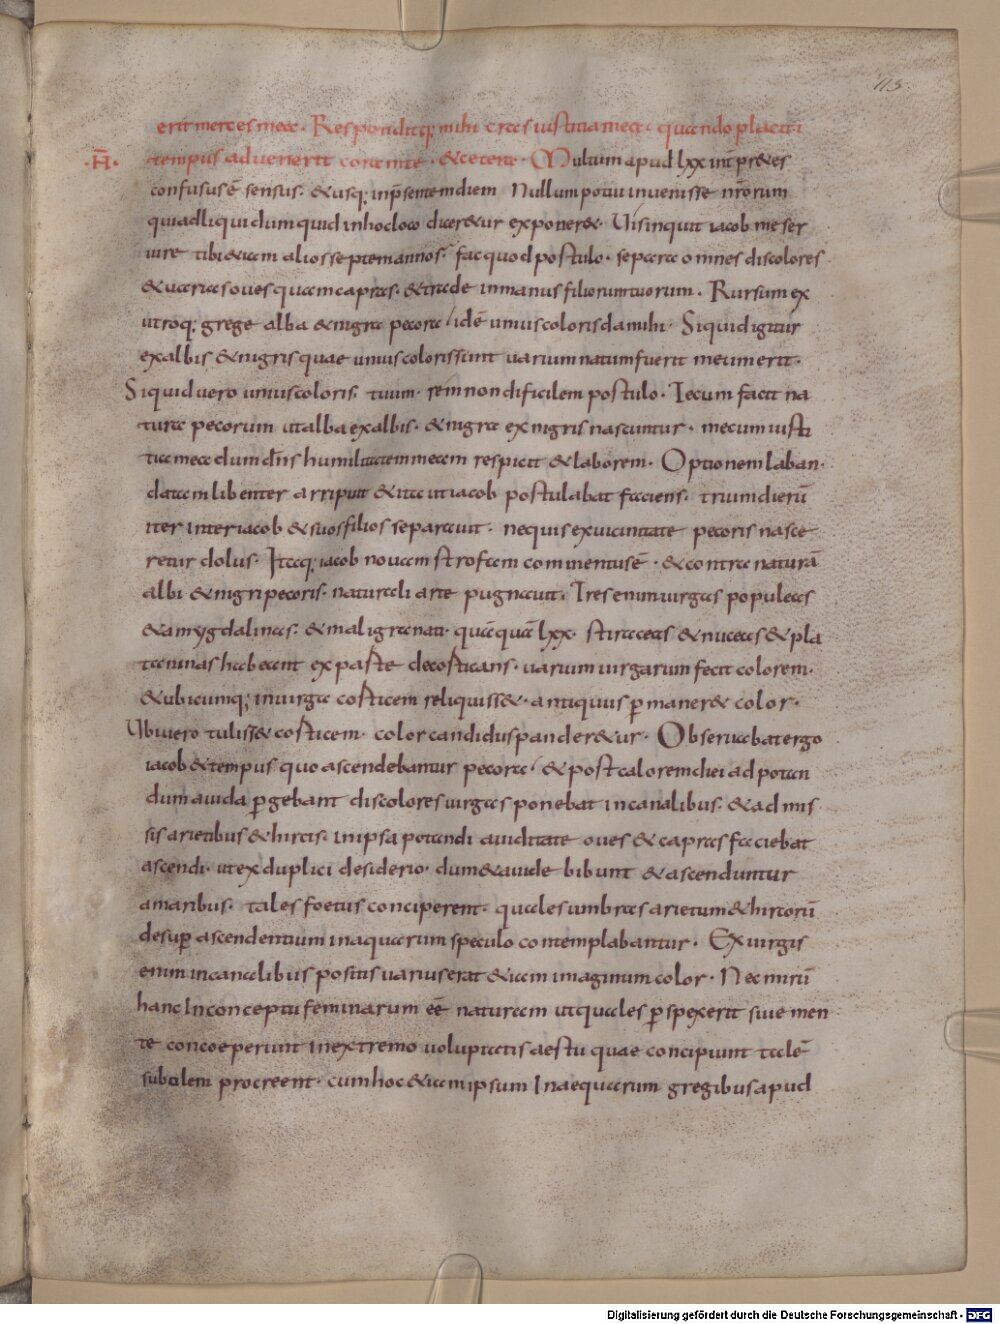 115
erit merces mea. Responditq; mihi cras iustitia mea. quando placiti
·H̄· tempus advenerit coram te. & cetera. Multum apud lxx intp̄r&es
confusus ē sensus. & usq; in p̄sentem diem Nullum potui invenisse nr̄orum
qui ad liquidum quid in hoc loco dicer&ur exponer&. Vis inquit iacob me ser
vire tibi &iam alios septem annos. fac quod postulo. separa omnes discolores
& varias oves quam capras. & trade in manus filiorum tuorum. Rursum ex
utroq; grege alba & nigra pecora / idē unius coloris da mihi. Si quid igitur
ex albis & nigris quae unius coloris sunt varium natum fuerit meum erit.
Si quid vero unius coloris. tuum. rem non dificilem postulo. Tecum facit na
tura pecorum ut alba ex albis. & nigra ex nigris nascuntur. mecum iusti
tia mea dum dn̄s humilitatem meam respicit & laborem. Optionem laban.
datam libenter arripuit & ita ut iacob postulabat faciens. trium dierū
iter inter iacob & suos filios separavit. ne quis ex vicinitate pecoris nasce
retur dolus. Itaq; iacob novam strofam commentus ē. & contra naturā
albi & nigri pecoris. naturali arte pugnavit. Tres enim virgas populeas
& amygdalinas. & maligranati. quāquā lxx. stiraceas & nuceas & pla
taninas habeant ex parte decorticans. varium virgarum fecit colorem.
& ubicumq; in virga corticem reliquiss&. antiquus p̄maner& color.
Ubi vero tuliss& corticem. color candidus pander&ur. Observabat ergo
iacob & tempus quo ascendebantur pecora. & post calorem diei ad potan
dum avida p̄gebant discolores virgas ponebat in canalibus. & admis
sis arietibus & hircis. in ipsa potandi aviditate oves & capras faciebat
ascendi. ut ex duplici desiderio. dum & avide bibunt & ascenduntur
amaribus. tales foetus conciperent. quales umbras arietum & hircorū
desup̄ ascendentium in aquarum speculo contemplabantur. Ex virgis
enim in canalibus positis varius erat &iam imaginum color. Nec mirū
hanc In conceptu feminarum eē naturam ut quales p̄spexerit sive men
te concoeperint in extremo voluptatis aestu quae concipiunt talē
subolem procreent. cum hoc &iam ipsum In aequarum gregibus apud
Digitalisierung gefördert durch die Deutsche Forschungsgemeinschaft - DFG